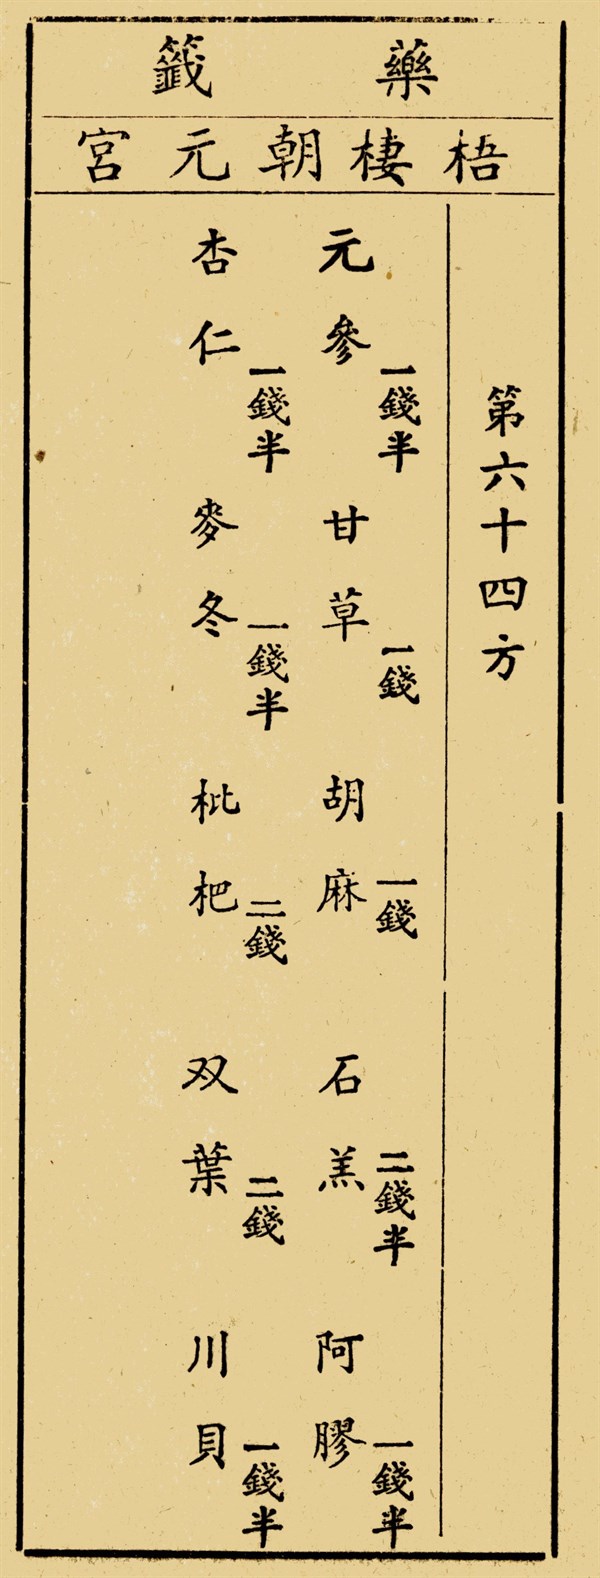 藥籤
梧棲朝元宮
第六十四方
元參 一錢半 甘草 一錢 胡麻 一錢 石羔 二錢半 阿膠 一錢半
杏仁 一錢半 麥冬 一錢半 枇杷 二錢 双葉 二錢 川貝 一錢半